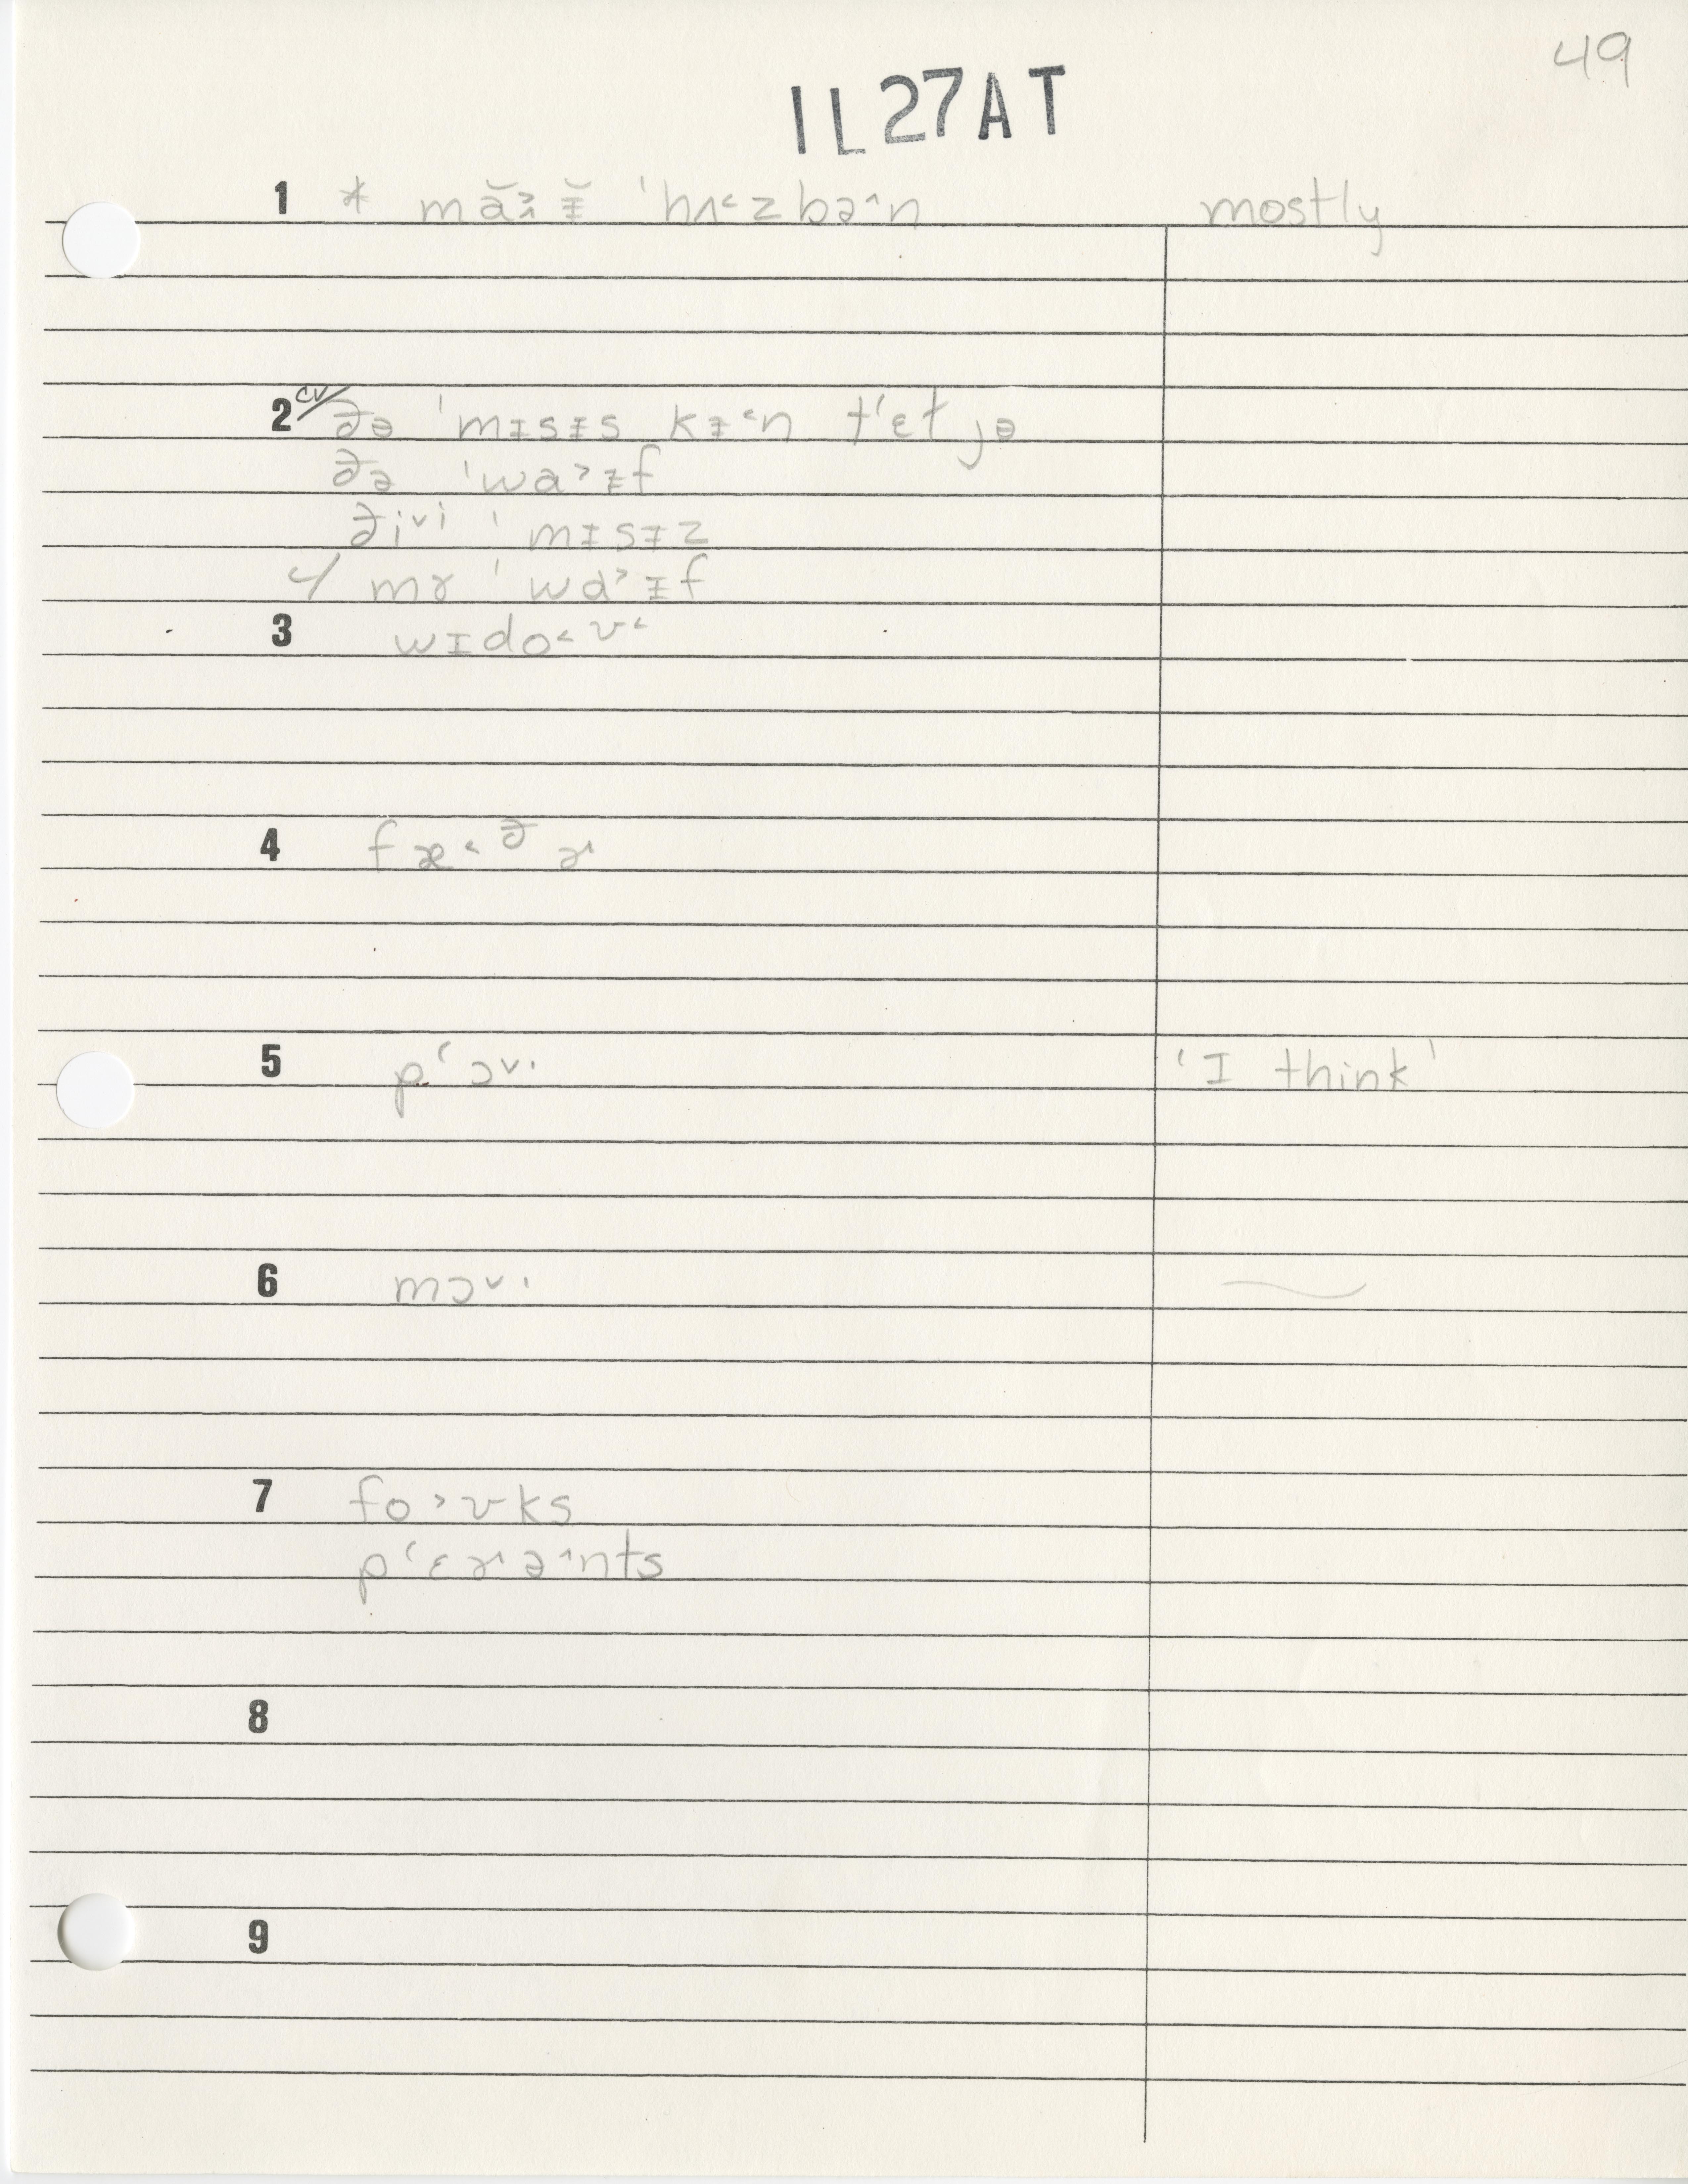 49
IL27AT
1 * mă˃ᵻ̆ ˈhʌ˂zbə˄n mostly
2 cv/ ðə ˈmᵻsᵻs kᵻ˂n tʻɛt jə
ðə ˈwa˃ᵻf
ði˅i ˈmᵻsᵻz
✓ mɤ ˈwa˃ᵻf
3 wɪdo˂ʊ˂
4 fæ˂ðɚ
5 pʻɔ˅· 'I think'
6 mɔ˅·
7 fo˃ʊks
pʻɛɚə˄nts
8
9